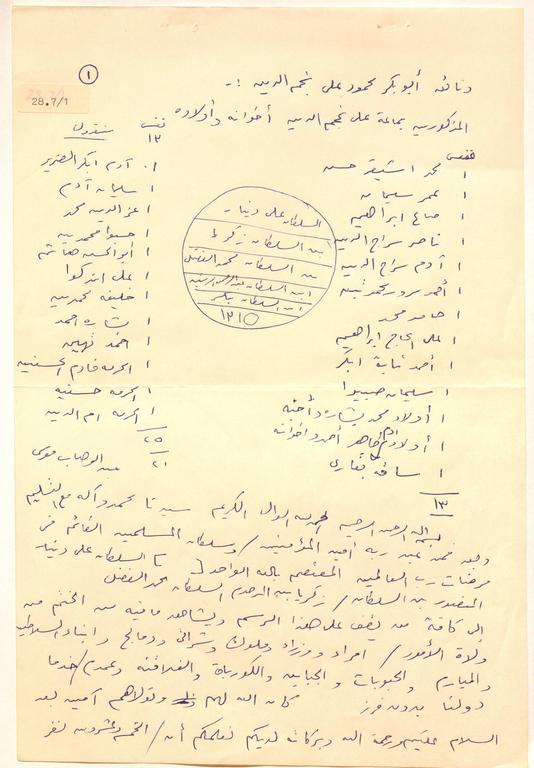 ١
28.7/1
وثائق أبوبكر محمود على نجم الدين :-
المذكورين بجماعة على نجم الدين أخوانه وأولاده
نفس
١ محمد اشيقر حسن
١ عمر سليمان
١ صالح ابراهيم
١ ناصر سراج الدين
١ آدم سراج الدين
١ أحمد سرور محمد
١ حامد محمد
١ على الحاج ابراهيم
١ أحمد ثابة ابكر
١ سليمان
١ أولاد محمد بشاره وأخته
١ أولاد آدم طاهر أحمد واخوانه
١ ساقه بقارى
١٣
نفس منقول
١٣
١ آدم ابكر الضرير
١ سليمان آدم
١ عز الدين محمد
١ محمدين
١ أبو الحسن هاشم
١ على اندكوا
١ خليفه محمدين
١ بشاره احمد
١ احمد
١ الحرمه خادم الحسنين
١ الحرمه حسنيه
١ الحرمه ام الدين
٢٥
٢١ عبد الوهاب موسى
السلطان على دينار
بن السلطان زكريا
بن السلطان محمد الفضل
ابن السلطان عبد الرحمن الرشيد
ابن السلطان بكر
١٣١٥
بسم الله الرحمن الرحيم الحمد لله الوال الكريم سيدنا محمد وآله مع التسليم
وبعد فمن عبد ربه أمين المؤمنين / وسلطان المسلمين القائم فى
مرضات رب العالمين المعتصم بالله الواحد نا السلطان على دينار
المنصور بن السلطان / زكريا بن المرحوم السلطان محمد الفضل
إلى كافة من يقف على هذا الرسم ويشاهد مافيه من الختم من
ولاة الأمور / امراء ووزراء وملوك وشراتى ودمالج وابناء السلاطين
والميارم والحبوبات والجبايين والكورياة والفلاقنه وعمدم / خدما
دولتنا بدون فرز كان الله لهم وتولاهم آمين بعد
السلام عليكم ورحمة الله وبركاته لديكم نعلمكم أن / الخمسة وعشرون نفر